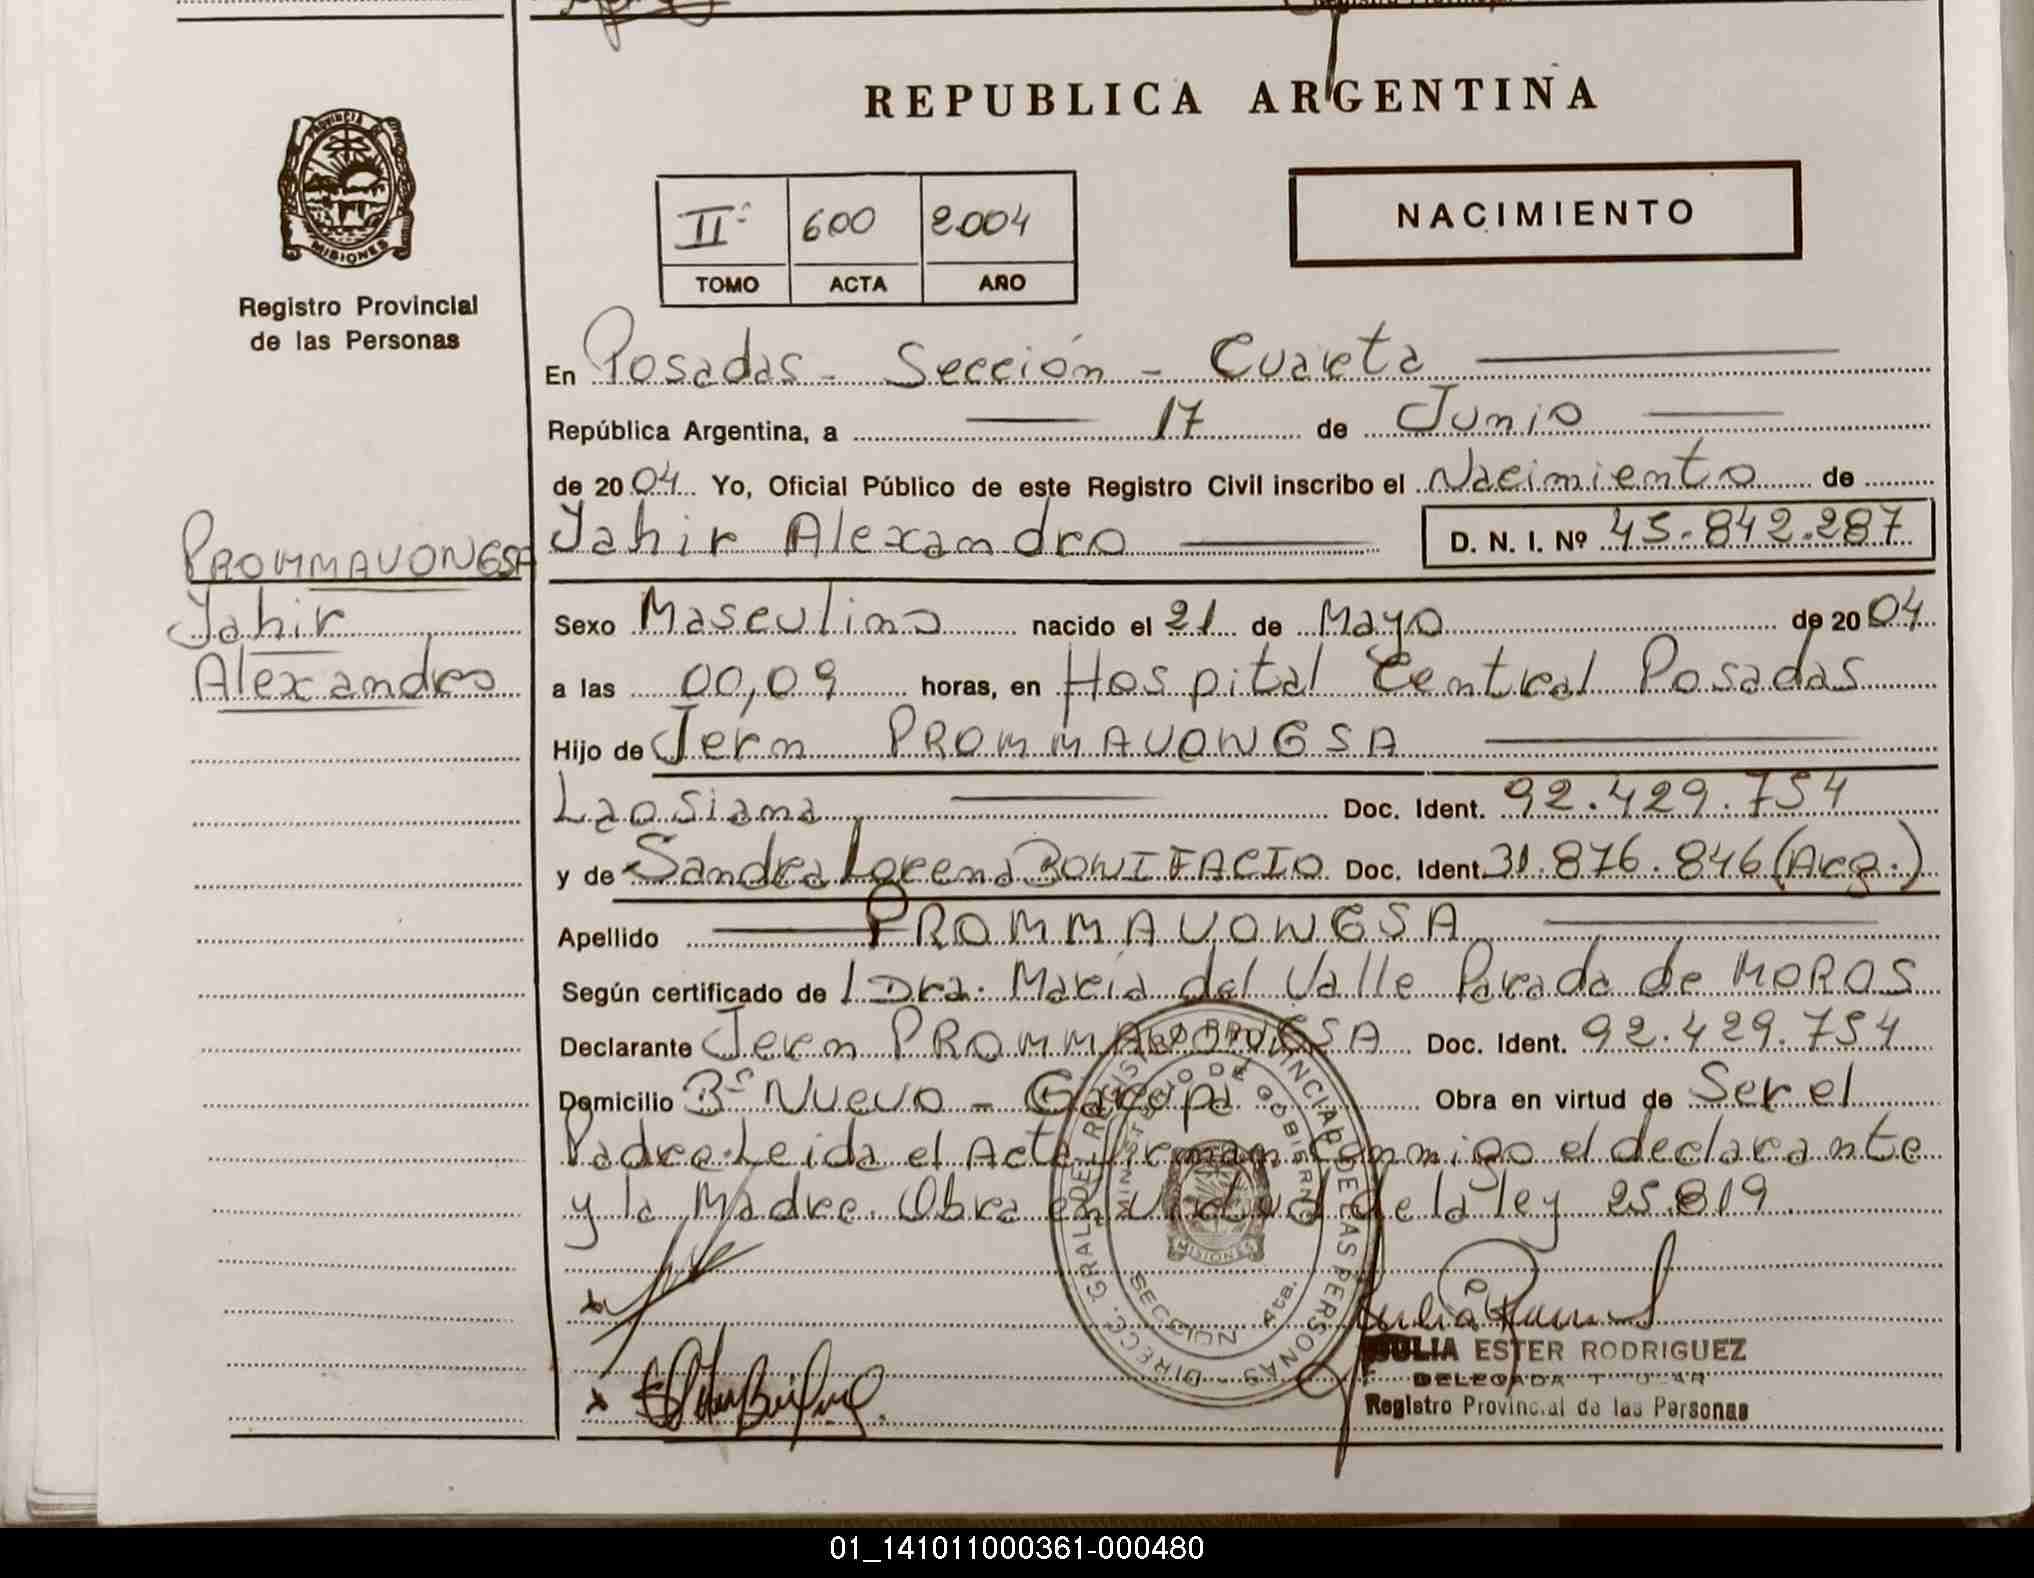 REPUBLICA ARGENTINA
PROVINCIA DE
MISIONES
Registro Provincial
de las Personas
IIº 600 2.004
TOMO ACTA AÑO
NACIMIENTO
En Posadas - Sección - Cuarta
República Argentina, a 17 de Junio
de 2004 Yo, Oficial Público de este Registro Civil inscribo el Nacimiento de
Jahir Alexandro D. N. I. Nº 45.842.287
PROMMAVONGSA
Jahir
Alexandro
Sexo Masculino nacido el 21 de Mayo de 2004
a las 00,09 horas, en Hospital Central Posadas
Hijo de Jern PROMMAVONGSA
Laosiana Doc. Ident. 92.429.754
y de Sandra Lorena BONIFACIO Doc. Ident. 31.876.846 (Arg.)
Apellido PROMMAVONGSA
Según certificado de / Dra. María del Valle Parada de MOROS
Declarante Jern PROMMAVONGSA Doc. Ident. 92.429.754
Domicilio Bº Nuevo - Garopa Obra en virtud de Ser el
Padre. Leida el Acta firman conmigo el declarante
y la Madre. Obra en virtud de la ley 25.819
DIRECC. GRAL. DE REGISTRO PROVINCIAL DE LAS PERSONAS
MINISTERIO DE GOBIERNO
MISIONES
SECCION 4ta.
JULIA ESTER RODRIGUEZ
DELEGADA TITULAR
Registro Provincial de las Personas
01_141011000361-000480